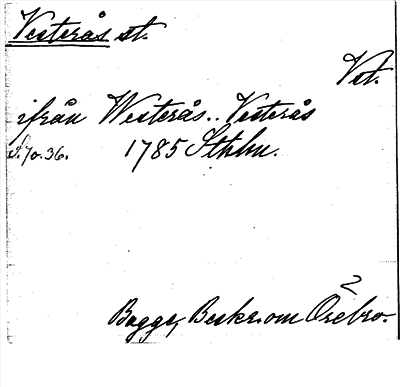 Vesterås st.
Vst.
ifrån Westerås.. Vesterås
s. 70. 36. 1785 Sthlm.
2
Bagge, Beskr. om Örebro.